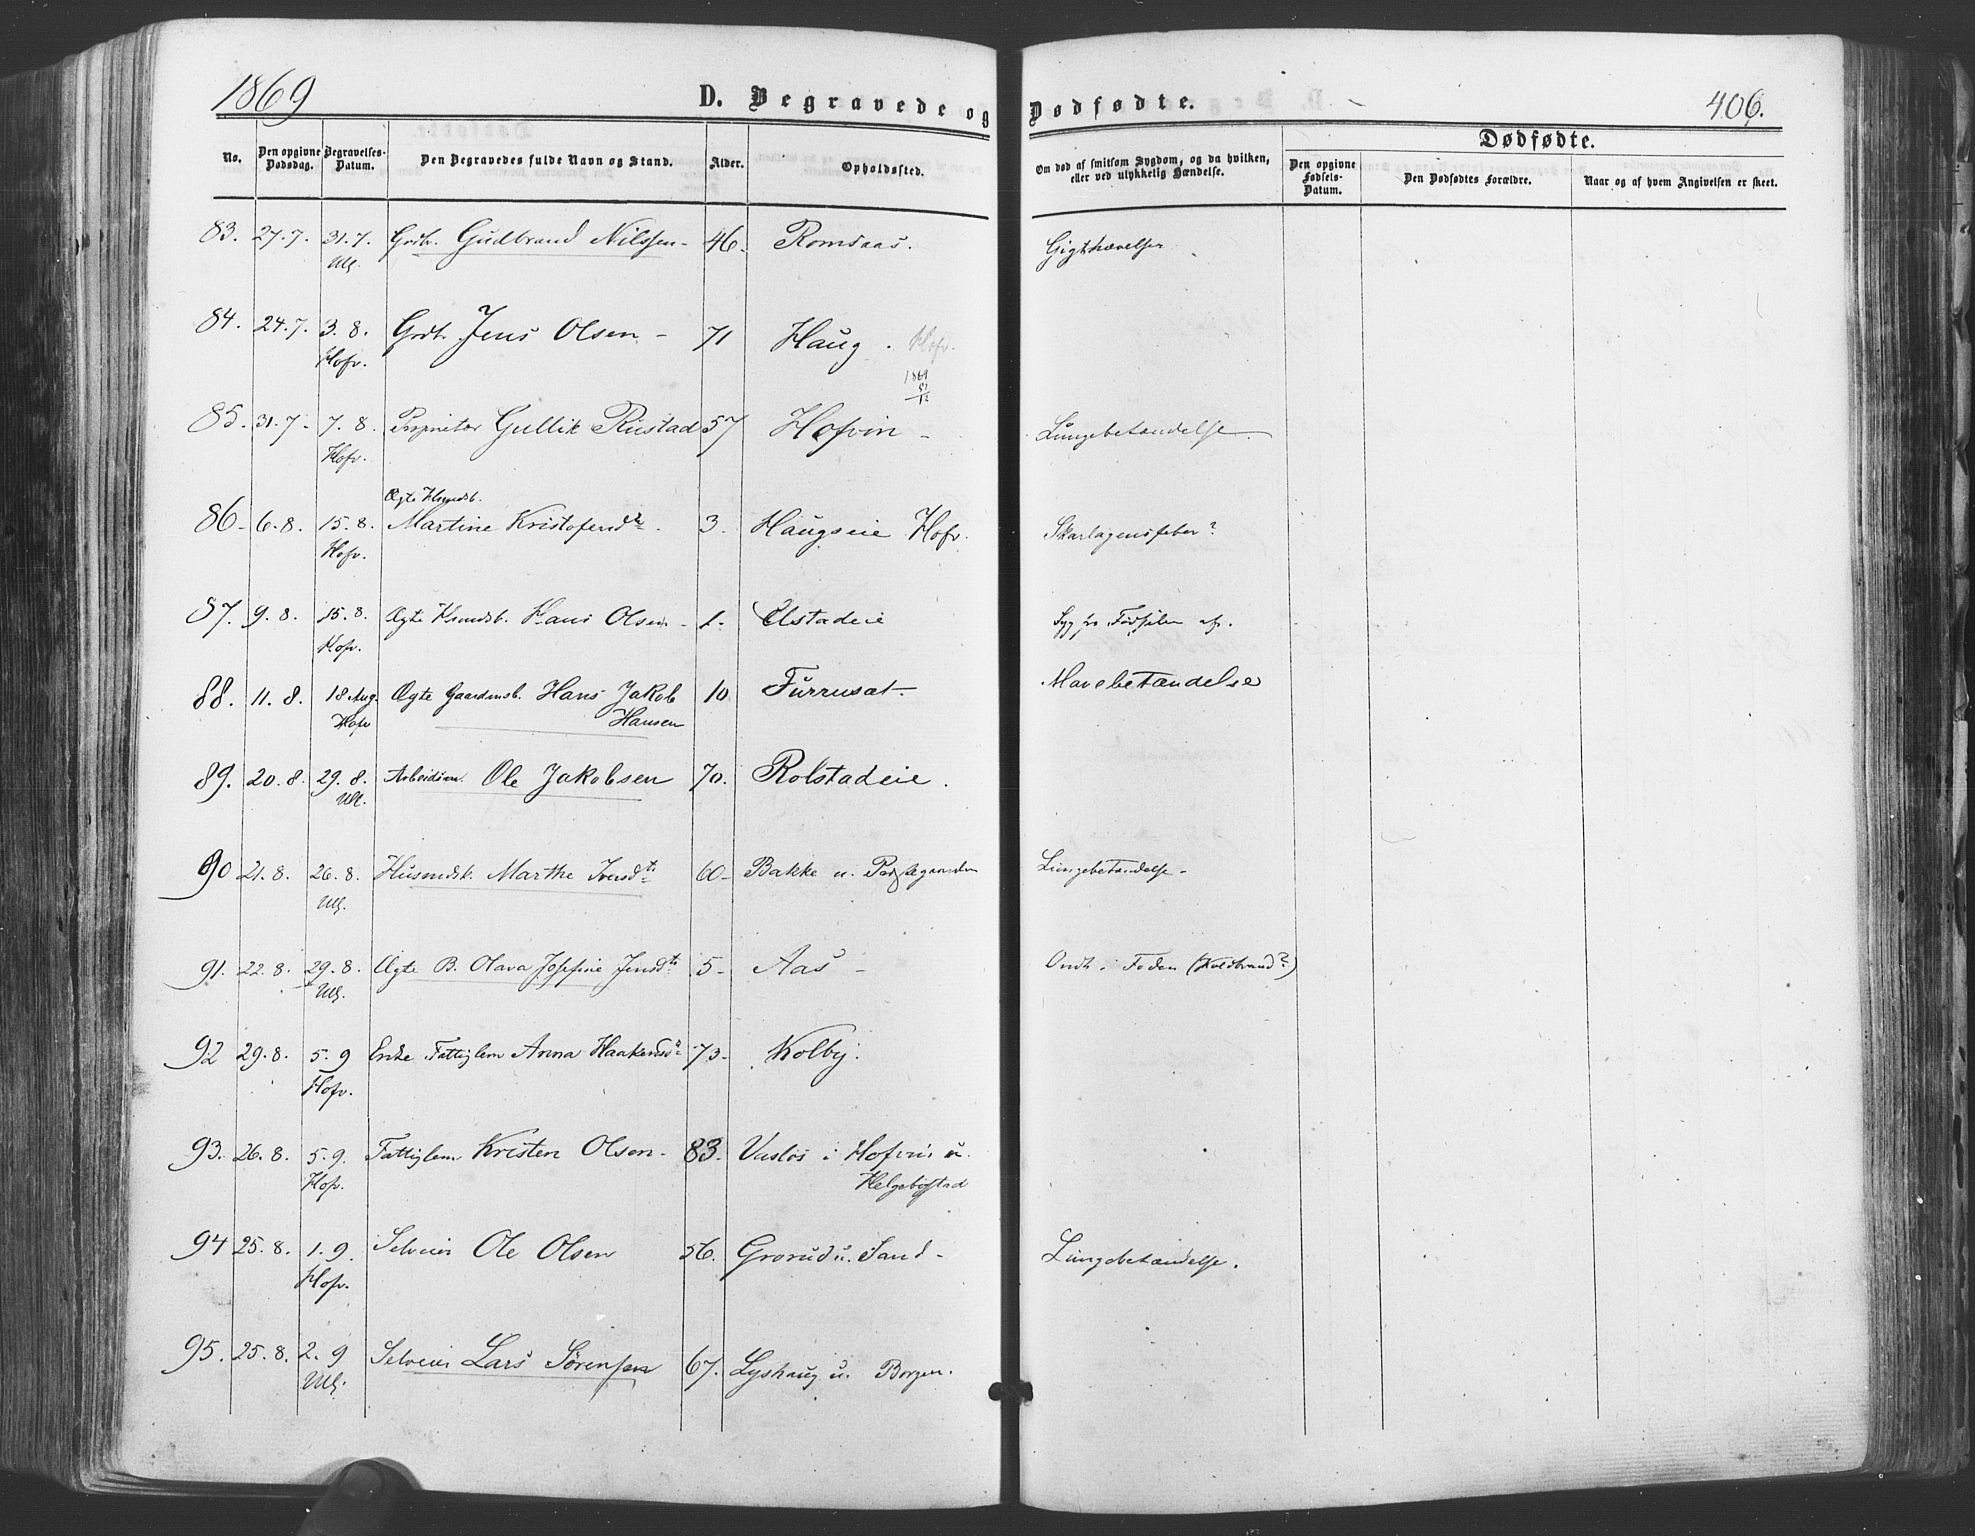 1869
D. Begravede og Dødfødte.
406.
No.
Den opgivne Dødsdag.
Begravelses-Datum.
Den Begravedes fulde Navn og Stand.
Alder.
Opholdssted.
Om død af smitsom Sygdom, og da hvilken, eller ved ulykkelig Hændelse.
Dødfødte.
Den opgivne Fødsels-Datum.
Den Dødfødtes Forældre.
Naar og af hvem Angivelsen er skeet.
83. 27.7. 31.7. Grdbr. Gudbrand Nilssen - 46 - Romsaas. Gigthævelser
Ull.
84. 24.7. 3.8. Grdbr. Jens Olsen - 71 Haug. Hofv.
Hofv.
1869
57
12
85. 31.7. 7.8. Proprietær Gullik Rustad 57 Hofvin - Lungebetændelse
Hofv.
Ægte Husmdsb.
86. 6.8. 15.8. Martine Kristofersdr. 3. Haugseie Hofv. Skarlagensfeber?
Hofv.
87. 9.8. 15.8. Ægte Husmdsb. Hans Olsen - 1. Elstadeie Syg fra Fødselen af.
Hofv.
88. 11.8. 18 Aug. Ægte Gaardmsb. Hans Jakob 10 Furruset - Mavebetændelse
Hofv Hansen
89. 20.8. 29.8. Arbeidsm. Ole Jakobsen 70. Rolstadeie.
Ull.
90 21.8. 26.8. Husmdsk. Marthe Iversdtr 60 - Bakke u. Præstegaarden Lungebetændelse -
Ull.
91. 22.8. 29.8. Ægte B. Olava Josefine Jensdtr 5 - Aas - Ondt i Foden (Koldbrand?)
Ull.
92 29.8. 5.9 Enke Fattiglem Anna Haakensdr 73 - Kolby.
Hofv.
93. 26.8. 5.9. Fattiglem Kristen Olsen - 83. Vasløs i Hofvin u.
Hofv. Helgebystad
94 25.8. 1.9. Selveier Ole Olsen 56. Grorud u. Sand - Lungebetændelse.
Hofv.
95. 25.8. 2.9 Selveier Lars Sørensen 67. Lyshaug u. Borgen.
Ull.